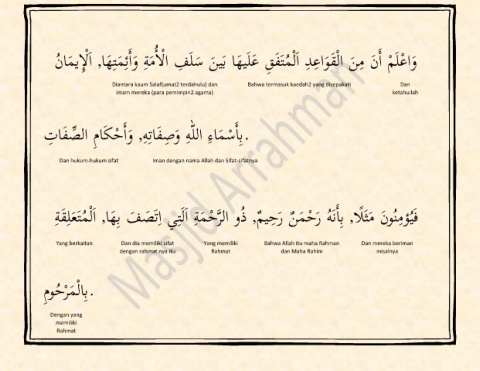 وَاعْلَمْ أَنَّ مِنَ الْقَوَاعِدِ اَلْمُتَّفَقِ عَلَيْهَا بَيْنَ سَلَفِ الْأُمَّةِ وَأَئِمَّتِهَا, اَلْإِيمَانُ
Dan ketahuilah
Bahwa termasuk kaedah2 yang disepakati
Diantara kaum Salaf(umat2 terdahulu) dan imam mereka (para pemimpin2 agama)
بِأَسْمَاءِ اللهِ وَصِفَاتِهِ, وَأَحْكَامِ الصِّفَاتِ.
Iman dengan nama Allah dan Sifat-sifatnya
Dan hukum-hukum sifat
فَيُؤْمِنُونَ مَثَلًا, بِأَنَّهُ رَحْمَنٌ رَحِيمٌ, ذُو الرَّحْمَةِ اَلَّتِي اِتَّصَفَ بِهَا, اَلْمُتَعَلِّقَةِ
Dan mereka beriman misalnya
Bahwa Allah itu maha Rahman dan Maha Rahim
Yang memiliki Rahmat
Dan dia memiliki sifat dengan rahmat nya itu
Yang berkaitan
بِالْمَرْحُومِ.
Dengan yang memiliki Rahmat
Masjid Arrahman